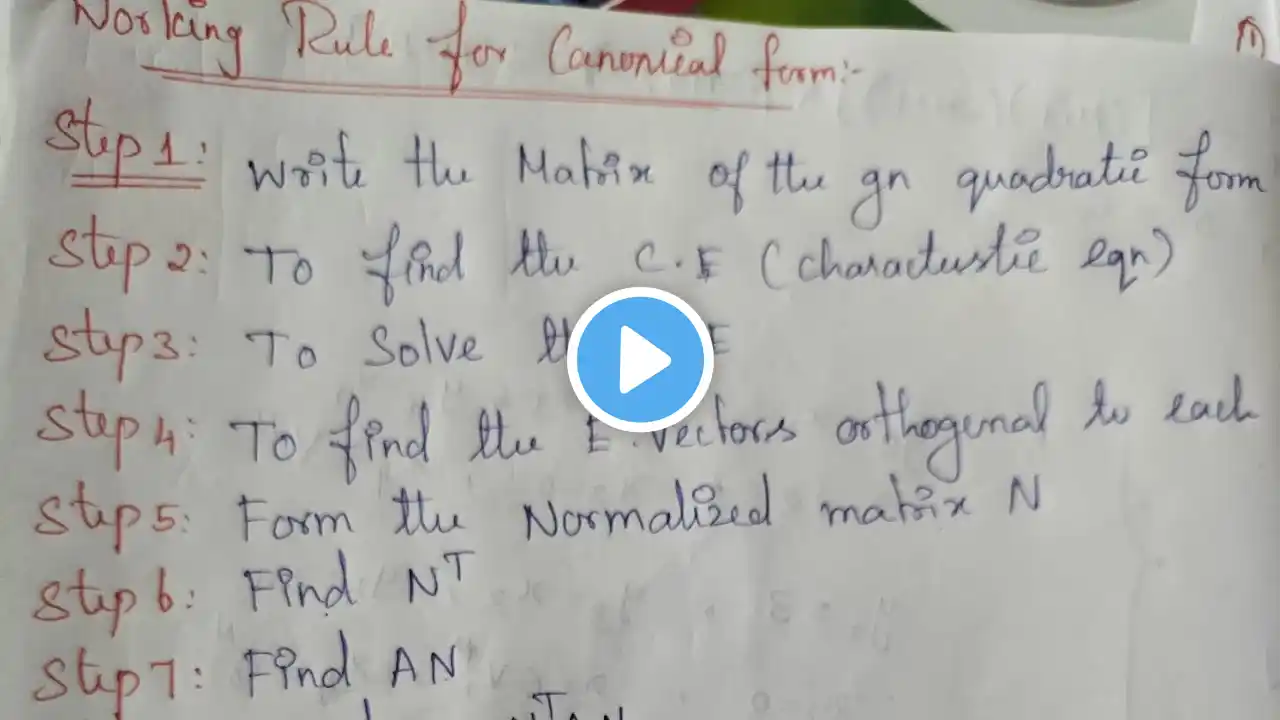 Working Rule for Canonical form:-
Step 1: Write the Matrix of the gn quadratic form
Step 2: To find the C.E (charactustic eqn)
Step 3: To Solve the E
Step 4: To find the E.Vectors orthogonal to each
Step 5: Form the Normalized matrix N
Step 6: Find Nᵀ
Step 7: Find AN
NᵀAN